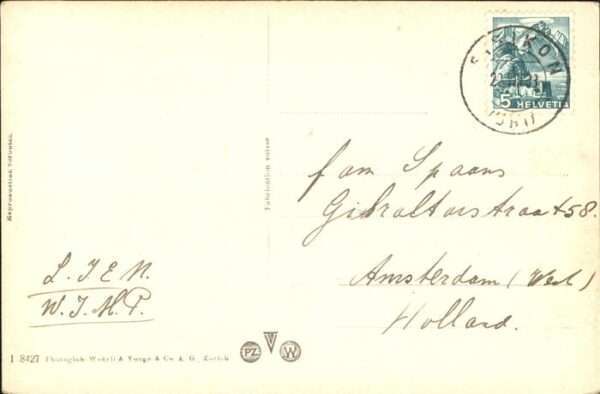 5 HELVETIA
Reproduction interdite.
Fabrication suisse
fam Spaans
Gibraltarstraat 58.
Amsterdam (West)
Holland.
L. I E N.
W. I. M. P.
1 8427 Photoglob-Wehrli & Vouga & Co. A. G., Zürich
PZ W